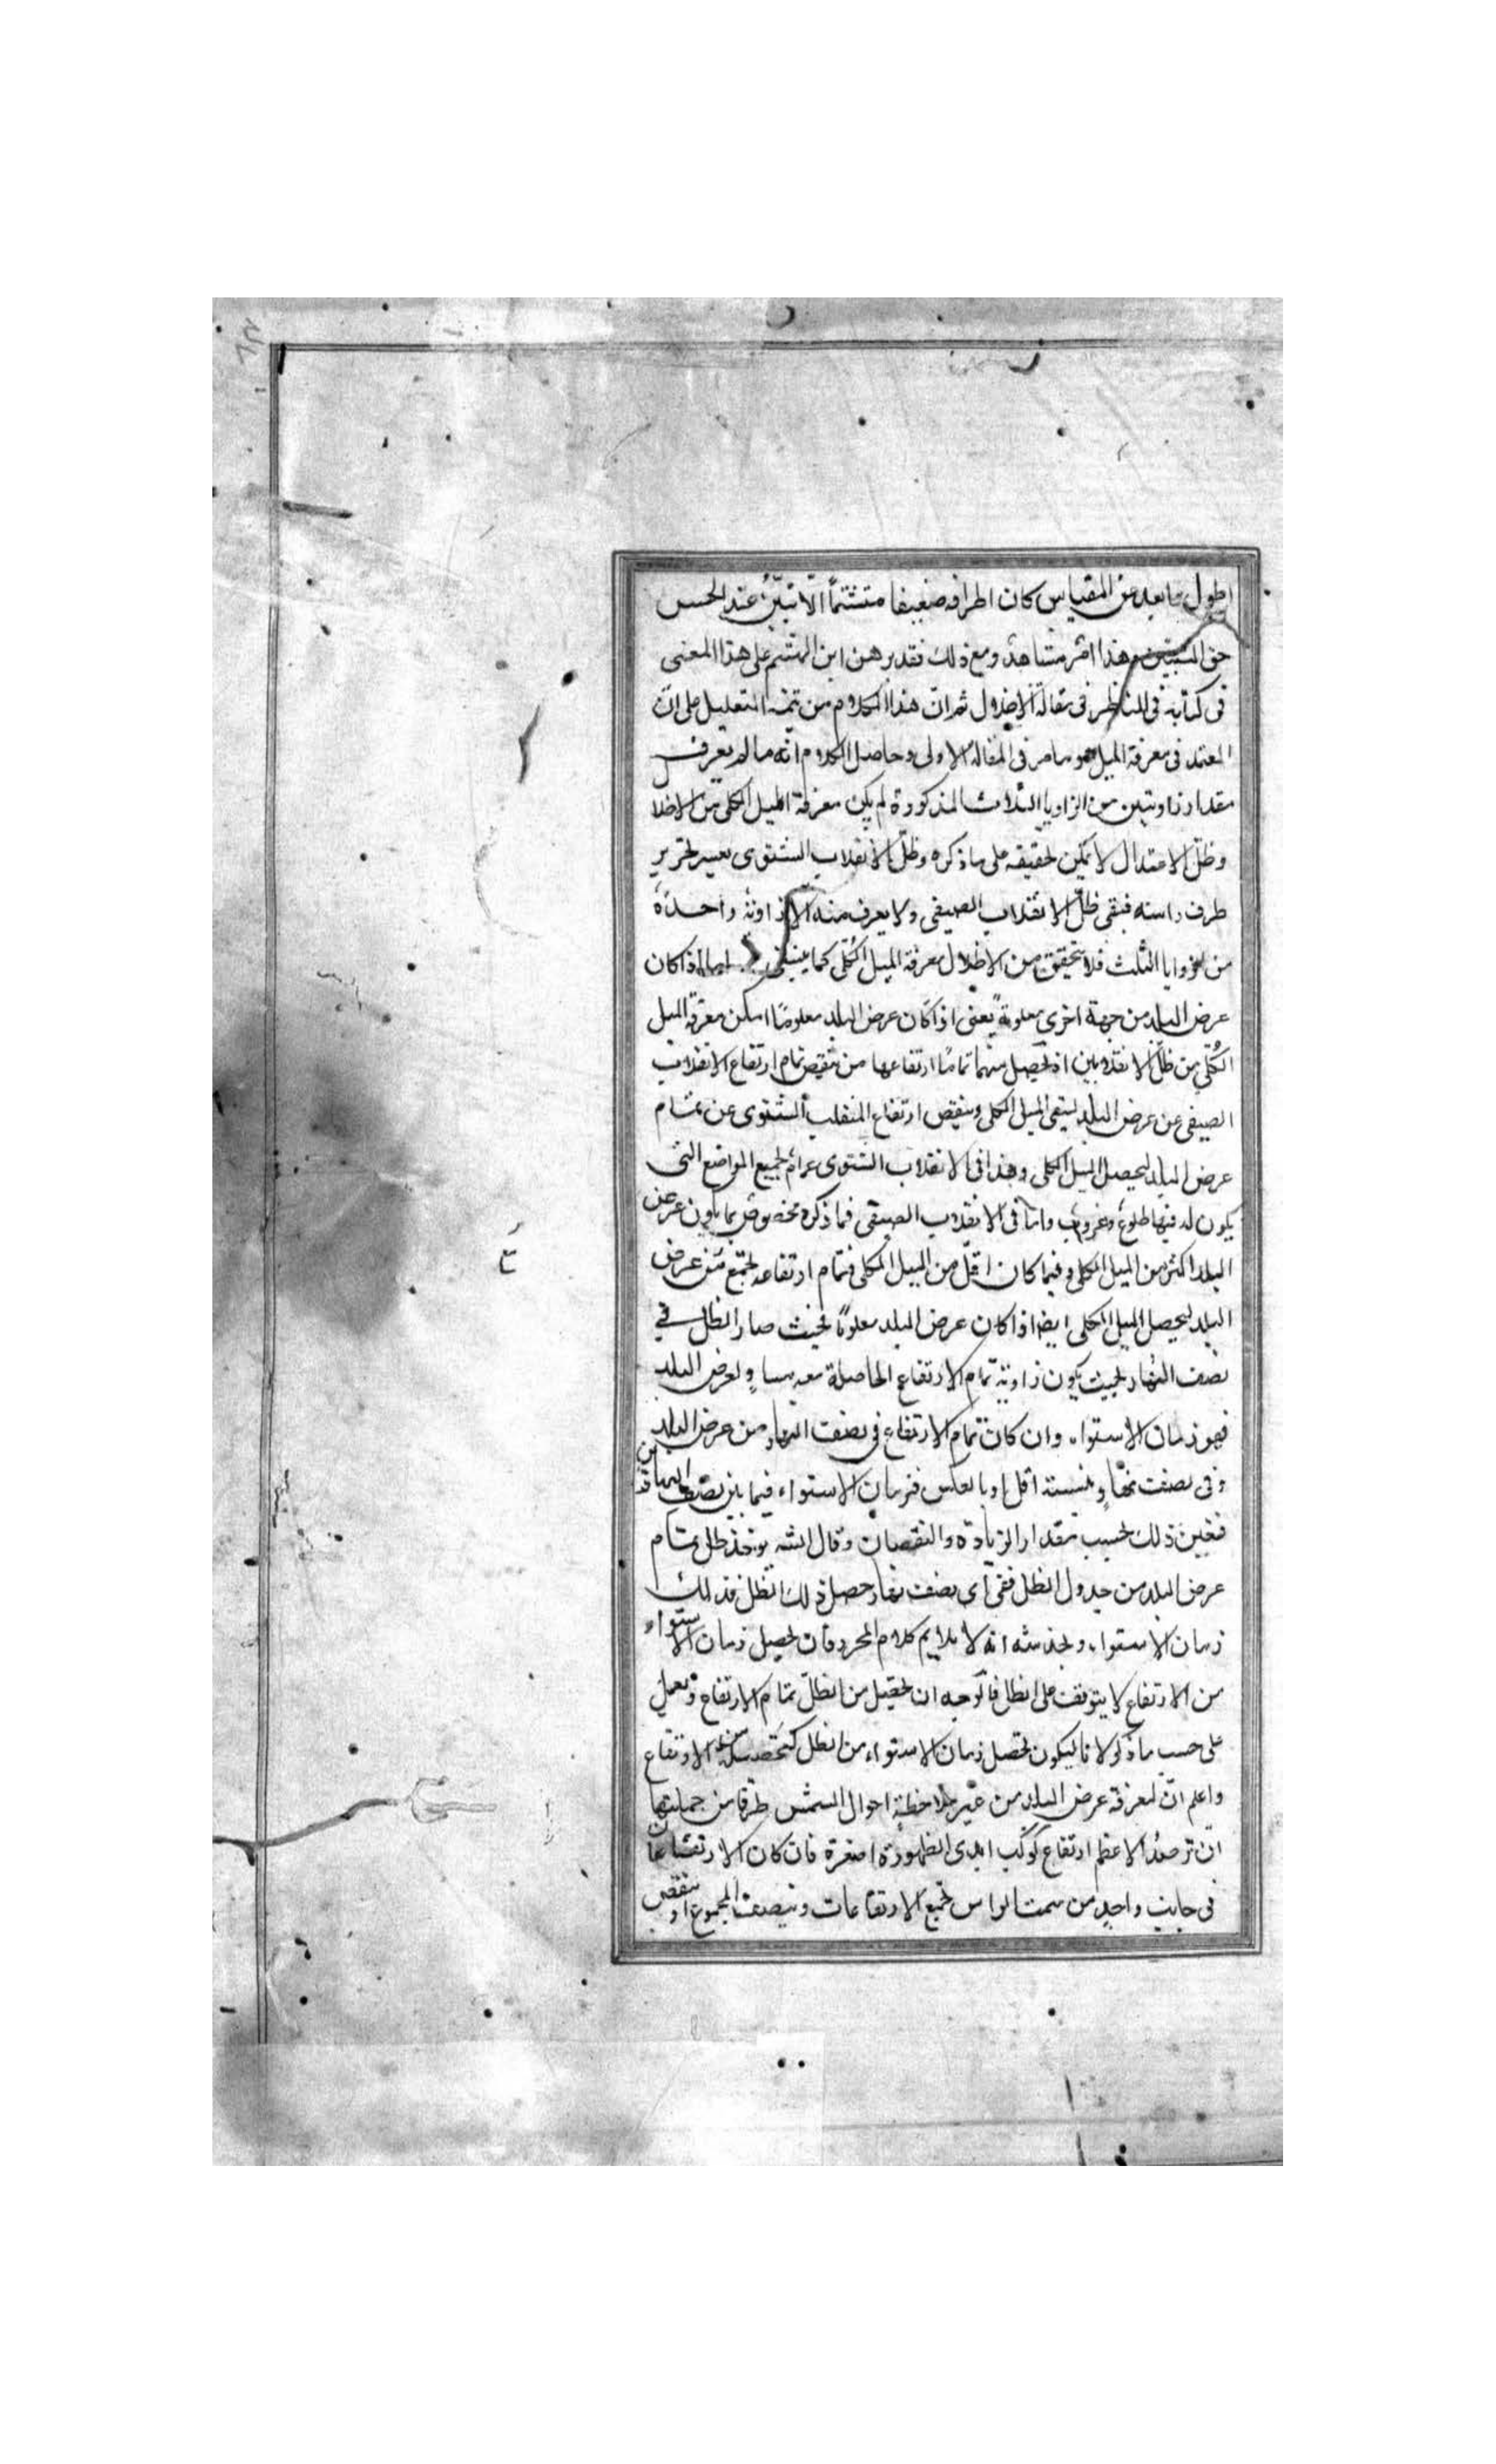 اطول ما بعد من المقياس كان اطرافه ضعيفا متشتتًا لا تتبيّن عند الحسّ
حق التبيّن وهذا امر مشاهد ومع ذلك فقد برهن ابن الهيثم على هذا المعنى
فى كتابه فى المناظر فى مقالة الاظلال ثم انّ هذا الكلام من تتمة التعليل على انّ
المعتمد فى معرفة الميل هو ما مر فى المقالة الاولى وحاصل الكلام انّه ما لم يعرف
مقدار زاويتين من الزوايا الثلاث المذكورة لم يكن معرفة الميل الكلى من الاظلال
وظلّ الاعتدال لا يمكن تحقيقه على ما ذكره وظلّ الانقلاب الشتوى يعسر تحرير
طرف راسه فبقى ظلّ الانقلاب الصيفى ولا يعرف منه الا زاوية واحدة
من الزوايا الثلث فلا يتحقق من الاظلال معرفة الميل الكلّى كما ينبغى اما اذا كان
عرض البلد من جهة اخرى معلومة يعنى اذا كان عرض البلد معلومًا امكن معرفة الميل
الكُلّى من ظلّ الانقلابين اذ يحصل منهما تماما ارتفاعها من تنقيص تمام ارتفاع الانقلاب
الصيفى عن عرض البلد ليبقى الميل الكلى وينقص ارتفاع المنقلب الشتوى عن تمام
عرض البلد ليحصل الميل الكلى وهذا فى الانقلاب الشتوى عام لجميع المواضع التى
يكون له فيها طلوع وغروب وامّا فى الانقلاب الصيفى فما ذكره مخصوص بما يكون عرض
البلد اكثر من الميل الكلى وفيما كان اقلّ من الميل الكلى فتمام ارتفاعه يجتمع مع عرض
البلد ليحصل الميل الكلى ايضا اذا كان عرض البلد معلومًا فحيث صار الظل فى
نصف النهار بحيث يكون زاوية تمام الارتفاع الحاصلة معه مساوٍ لعرض البلد
فهو زمان الاستواء وان كان تمام الارتفاع فى نصف النهار من عرض البلد
وفى نصف نهارٍ بنسبته اقل او بالعكس فزمان الاستواء فيما بين نصف النهارين
فتعين ذلك بحسب مقدار الزيادة والنقصان وقال الشه يوخذ ظل تمام
عرض البلد من جدول الظل ففى اى نصف نهار حصل ذلك الظل فذلك
زمان الاستواء ويخدشه انه لا يلايم كلام المحرر فان تحصيل زمان الاستواء
من الارتفاع لا يتوقف على الظل فالوجه ان يحصل من الظلّ تمام الارتفاع ويعمل
على حسب ما ذكر لا ليكون تحصل زمان الاستواء من الظل كتحصيله من الارتفاع
واعلم انّ لمعرفة عرض البلد من غير ملاحظة احوال الشمس طرقا من جملتها
ان ترصد الاعظم ارتفاع كوكب ابدى الظهور و اصغره فان كان الارتفاعان
فى جانب واحد من سمت الراس نجمع الارتفاعات وننصف المجموع او ننقص